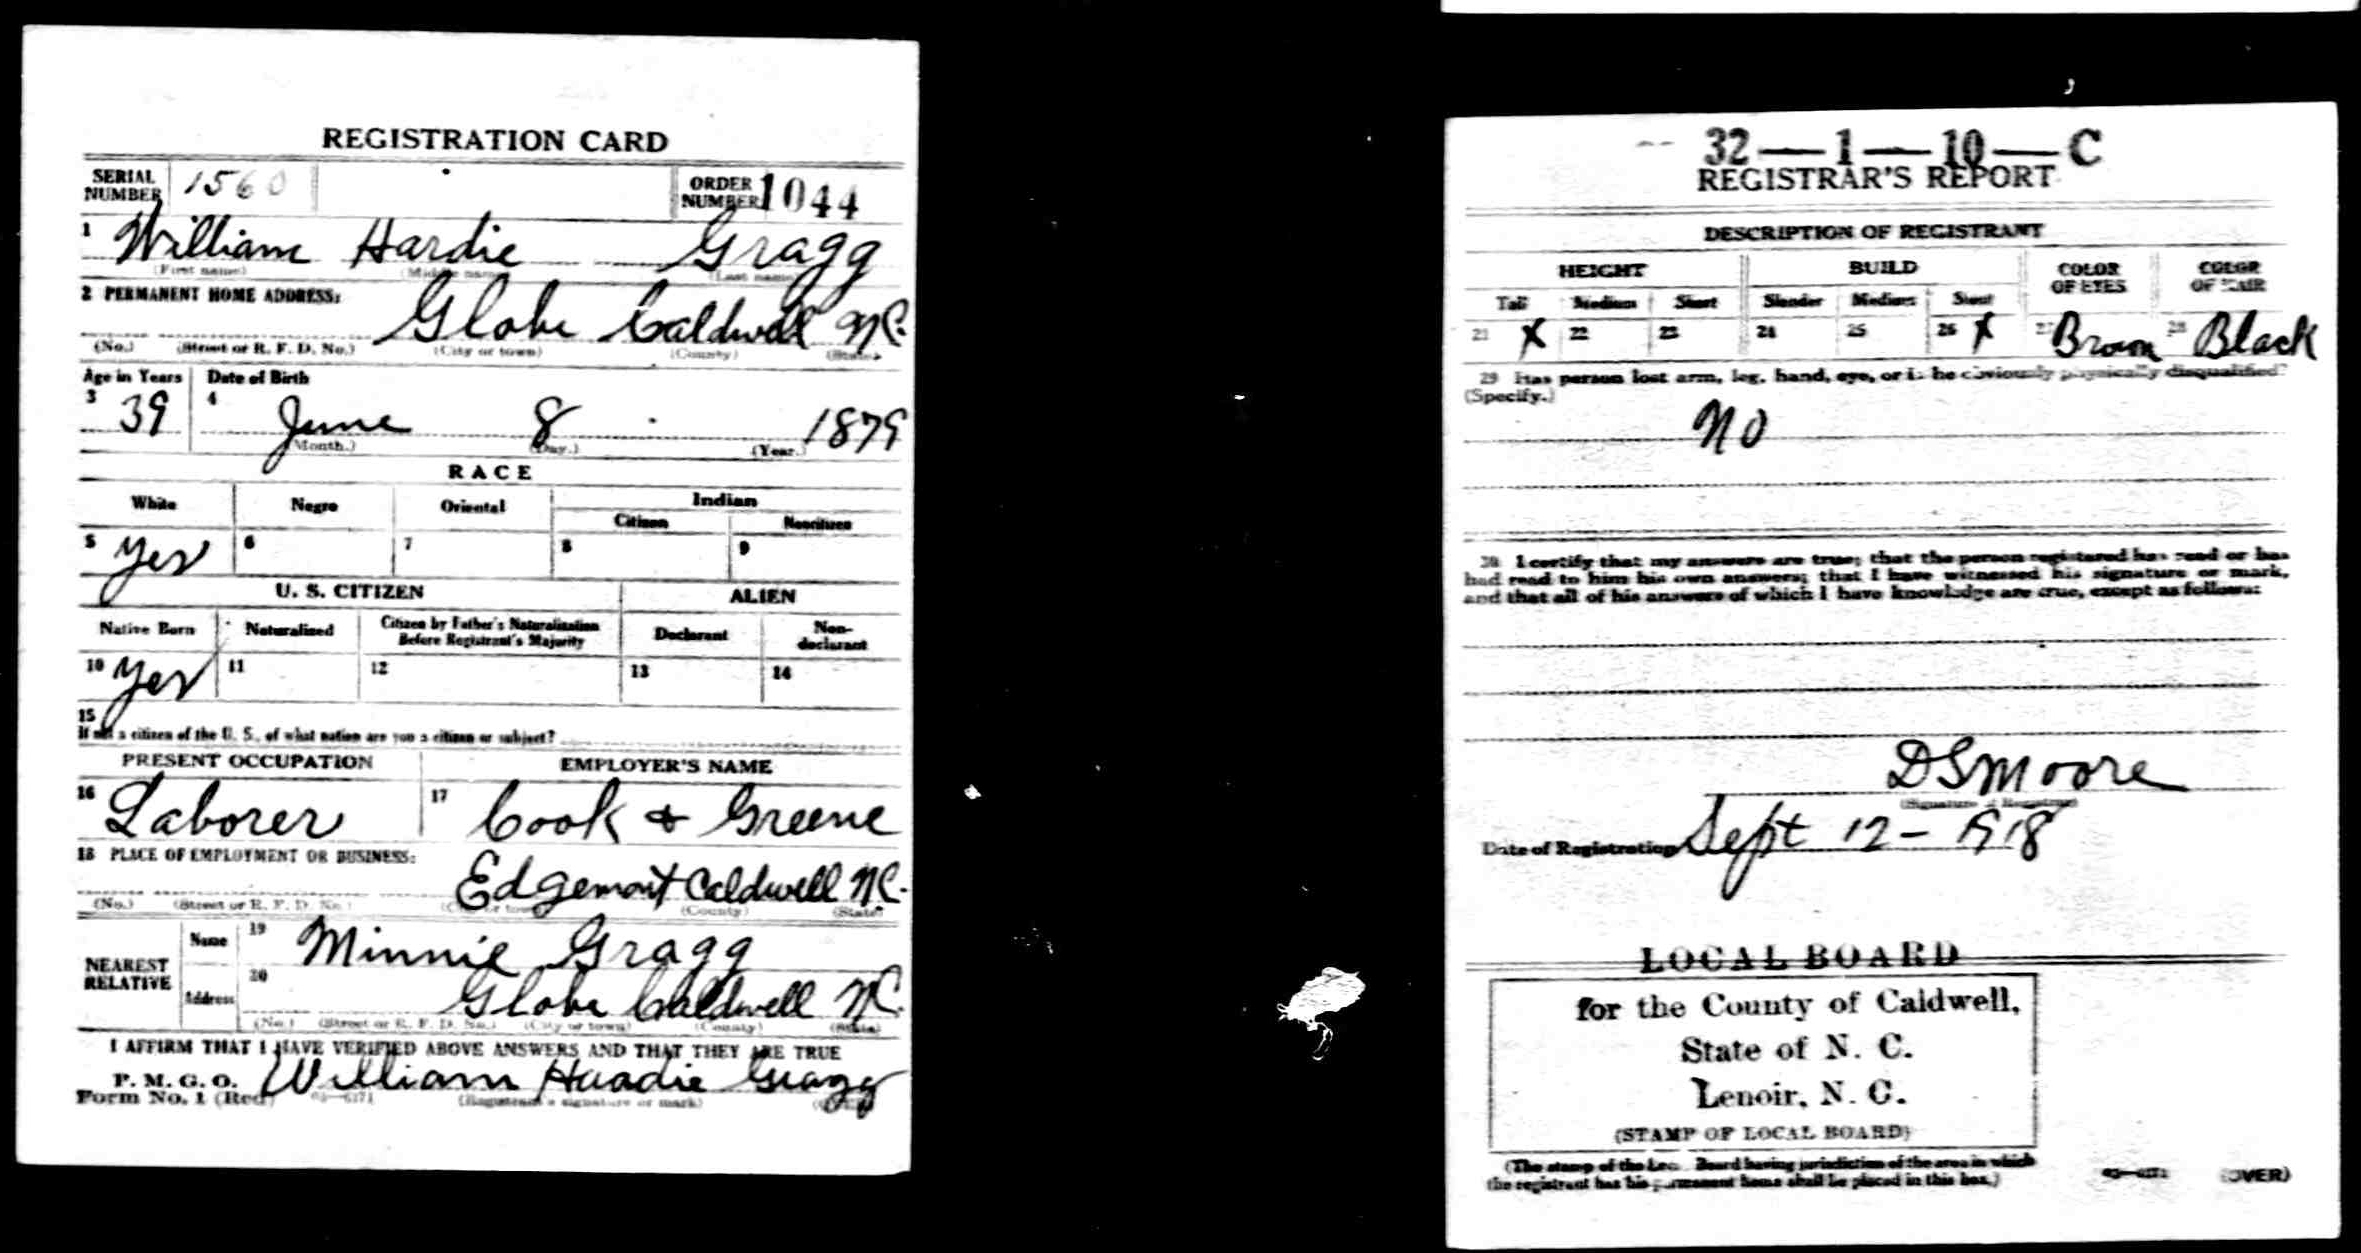 REGISTRATION CARD
SERIAL NUMBER 1560 ORDER NUMBER 1044
1 William Hardie Gragg
(First name) (Middle name) (Last name)
2 PERMANENT HOME ADDRESS:
Globe Caldwell NC.
(No.) (Street or R. F. D. No.) (City or town) (County) (State)
Age in Years Date of Birth
3 39 4 June 8 1879
(Month.) (Day.) (Year.)
RACE
White Negro Oriental Indian
Citizen Noncitizen
5 Yes 6 7 8 9
U. S. CITIZEN ALIEN
Native Born Naturalized Citizen by Father's Naturalization Before Registrant's Majority Declarant Non-declarant
10 Yes 11 12 13 14
15
If not a citizen of the U. S., of what nation are you a citizen or subject?
PRESENT OCCUPATION EMPLOYER'S NAME
16 Laborer 17 Cook & Greene
18 PLACE OF EMPLOYMENT OR BUSINESS:
Edgemont Caldwell NC.
(No.) (Street or R. F. D. No.) (City or town) (County) (State)
NEAREST RELATIVE Name 19 Minnie Gragg
Address 20 Globe Caldwell NC.
(No.) (Street or R. F. D. No.) (City or town) (County) (State)
I AFFIRM THAT I HAVE VERIFIED ABOVE ANSWERS AND THAT THEY ARE TRUE
P. M. G. O.
Form No. 1 (Red) William Haadie Gragg
(Registrant's signature or mark)
32—1—10—C
REGISTRAR'S REPORT
DESCRIPTION OF REGISTRANT
HEIGHT BUILD COLOR OF EYES COLOR OF HAIR
Tall Medium Short Slender Medium Stout
21 X 22 23 24 25 26 X 27 Brown 28 Black
29 Has person lost arm, leg, hand, eye, or is he obviously physically disqualified?
(Specify.)
No
30 I certify that my answers are true; that the person registered has read or has
had read to him his own answers; that I have witnessed his signature or mark,
and that all of his answers of which I have knowledge are true, except as follows:
DSMoore
(Signature of Registrar)
Date of Registration Sept 12 - 1918
LOCAL BOARD
for the County of Caldwell,
State of N. C.
Lenoir, N. C.
(STAMP OF LOCAL BOARD)
(The stamp of the Local Board having jurisdiction of the area in which
the registrant has his permanent home shall be placed in this box.)
(OVER)